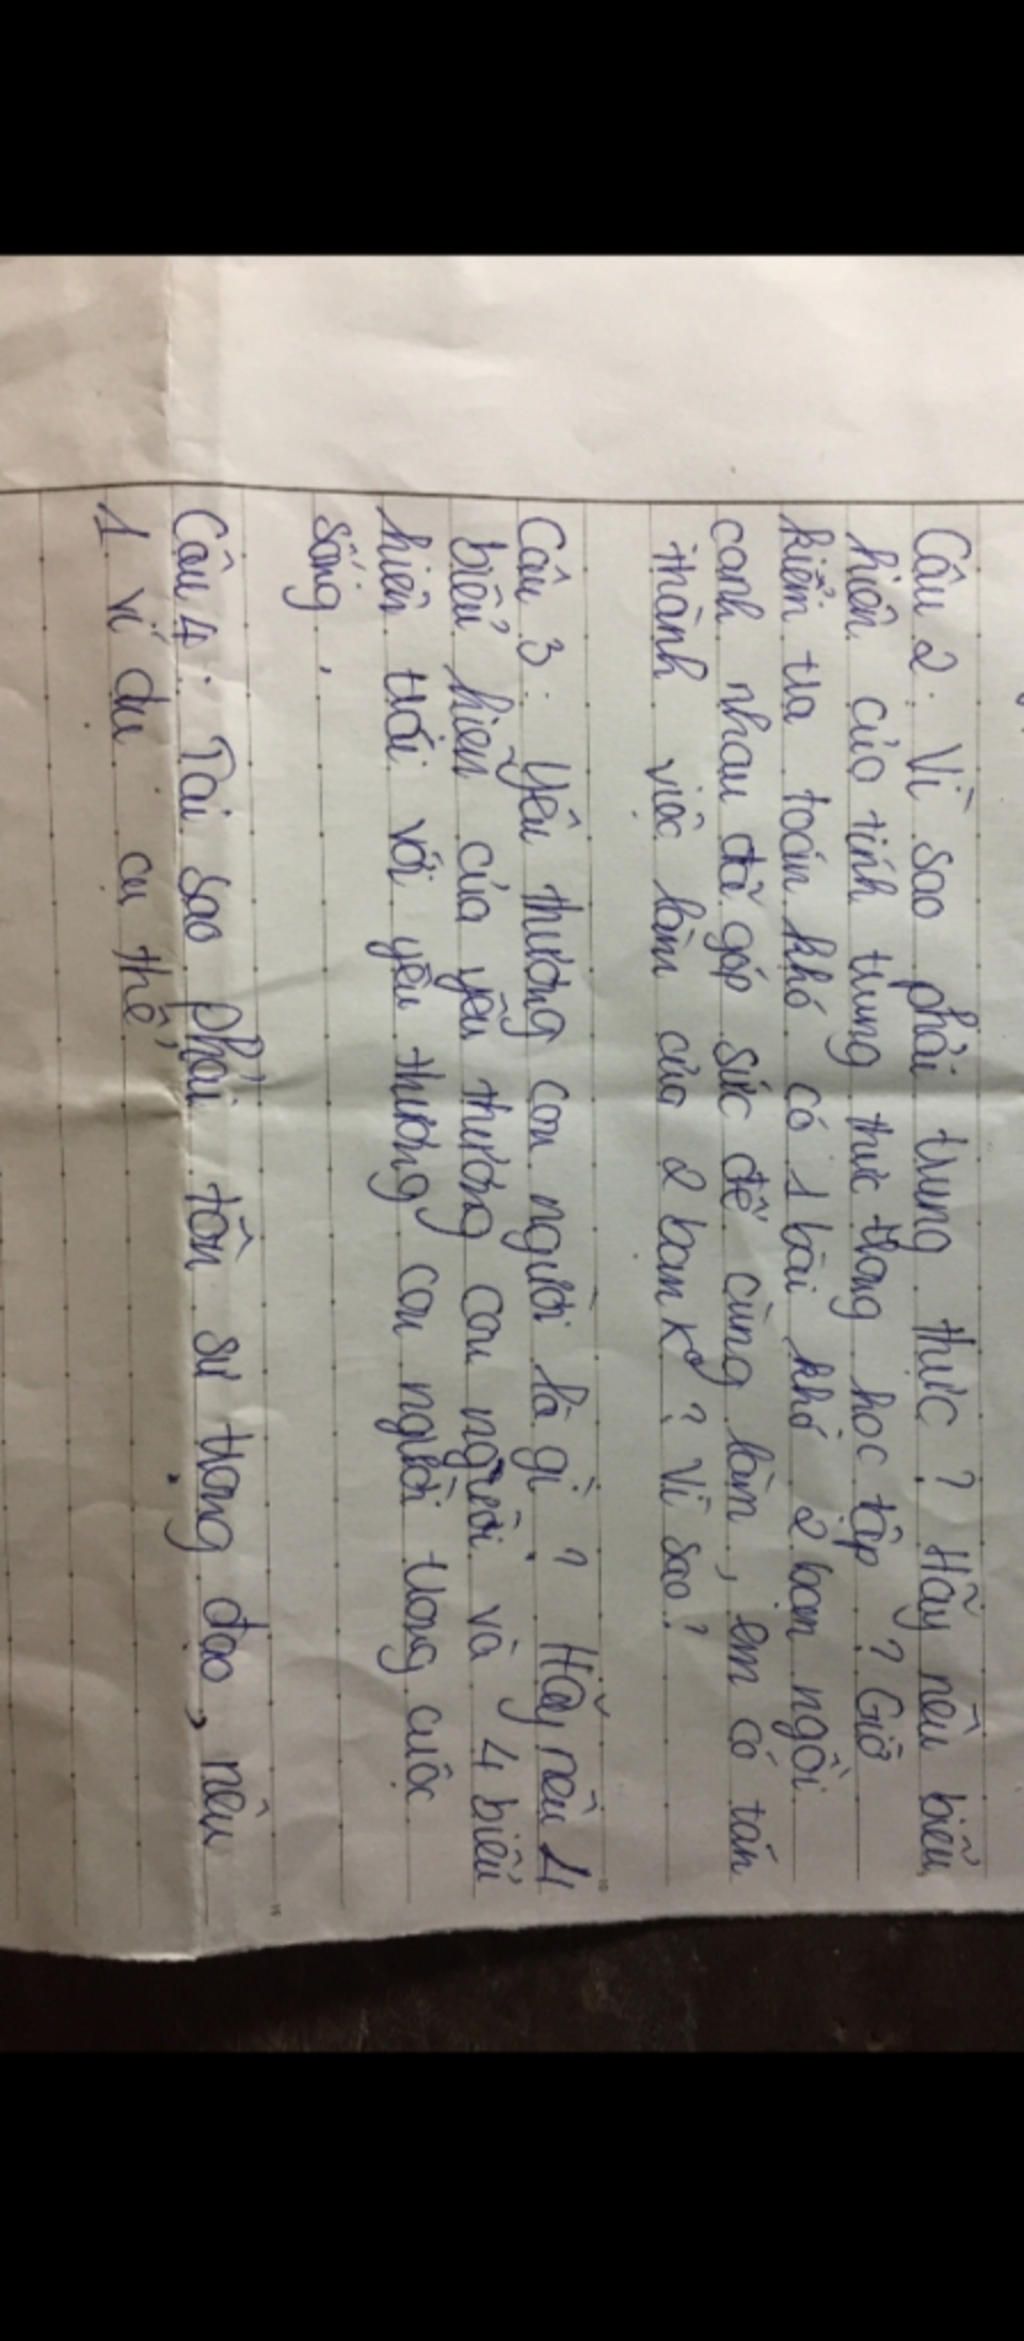 Câu 2 : Vì sao phải trung thực ? Hãy nêu biểu
hiện của tính trung thực trong học tập ? Giờ
kiểm tra toán khó có 1 bài khó 2 bạn ngồi
cạnh nhau đã góp sức để cùng làm , em có tán
thành việc làm của 2 bạn ko ? Vì sao ?
Câu 3 : Yêu thương con người là gì ? Hãy nêu 4
biểu hiện của yêu thương con người và 4 biểu
hiện trái với yêu thương con người trong cuộc
sống .
Câu 4 : Tại sao phải tôn sư trọng đạo , nêu
1 ví dụ cụ thể